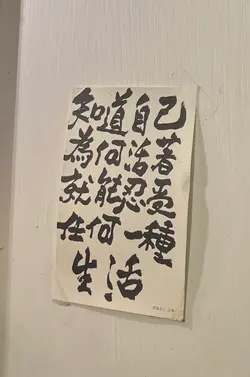 知道自己
為何活著
就能忍受
任何一種
生活